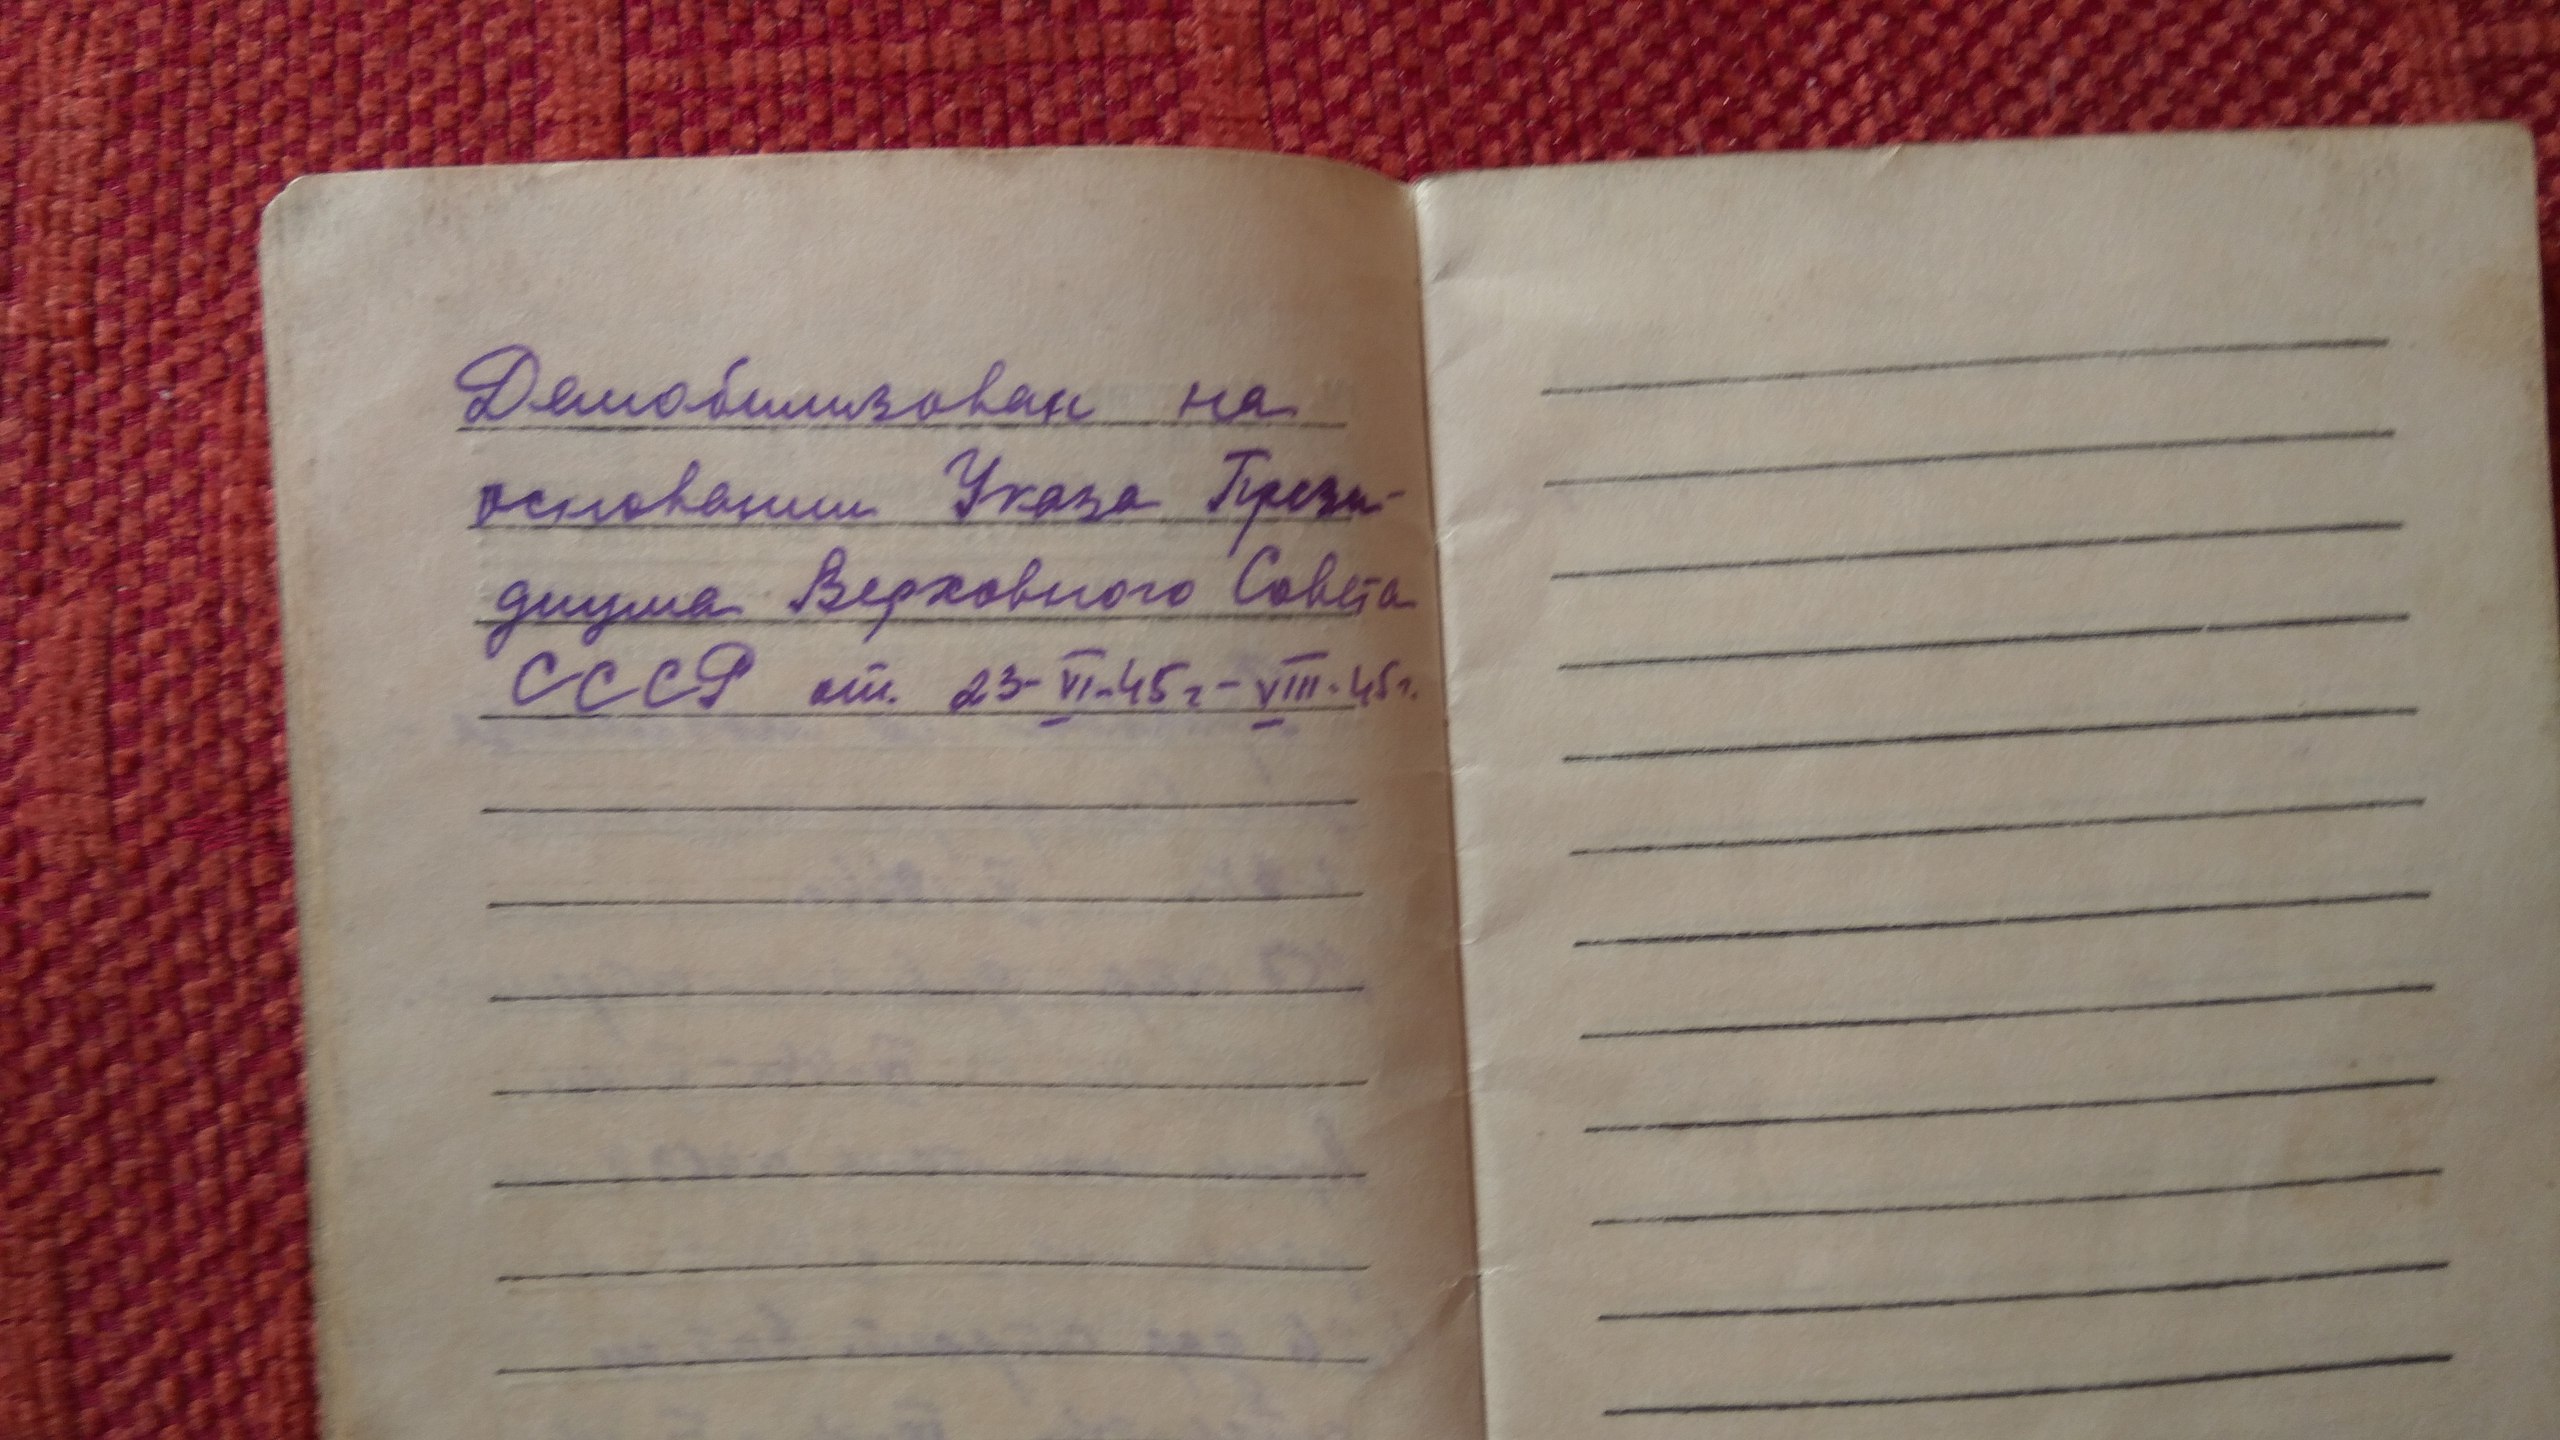 Демобилизован на
основании Указа Прези-
диума Верховного Совета
СССР от. 23-VI-45г-VIII.45г.